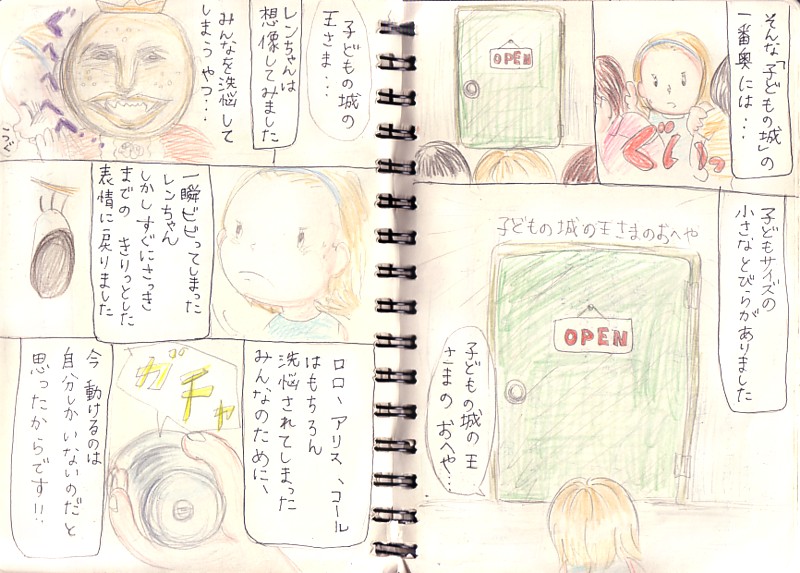 そんな「子どもの城」の
一番奥には・・・
ぐいっ
OPEN
子どもサイズの
小さなとびらがありました
子どもの城の王さまのおへや
OPEN
子どもの城の王
さまの おへや…
子どもの城の
王さま・・・
レンちゃんは
想像してみました
みんなを洗脳して
しまうやつ・・・
一瞬ビビってしまった
レンちゃん
しかしすぐにさっき
までの きりっとした
表情に戻りました
ロロ、アリス、コール
はもちろん
洗脳されてしまった
みんなのために、
ガチャ
今 動けるのは
自分しかいないのだと
思ったからです!!